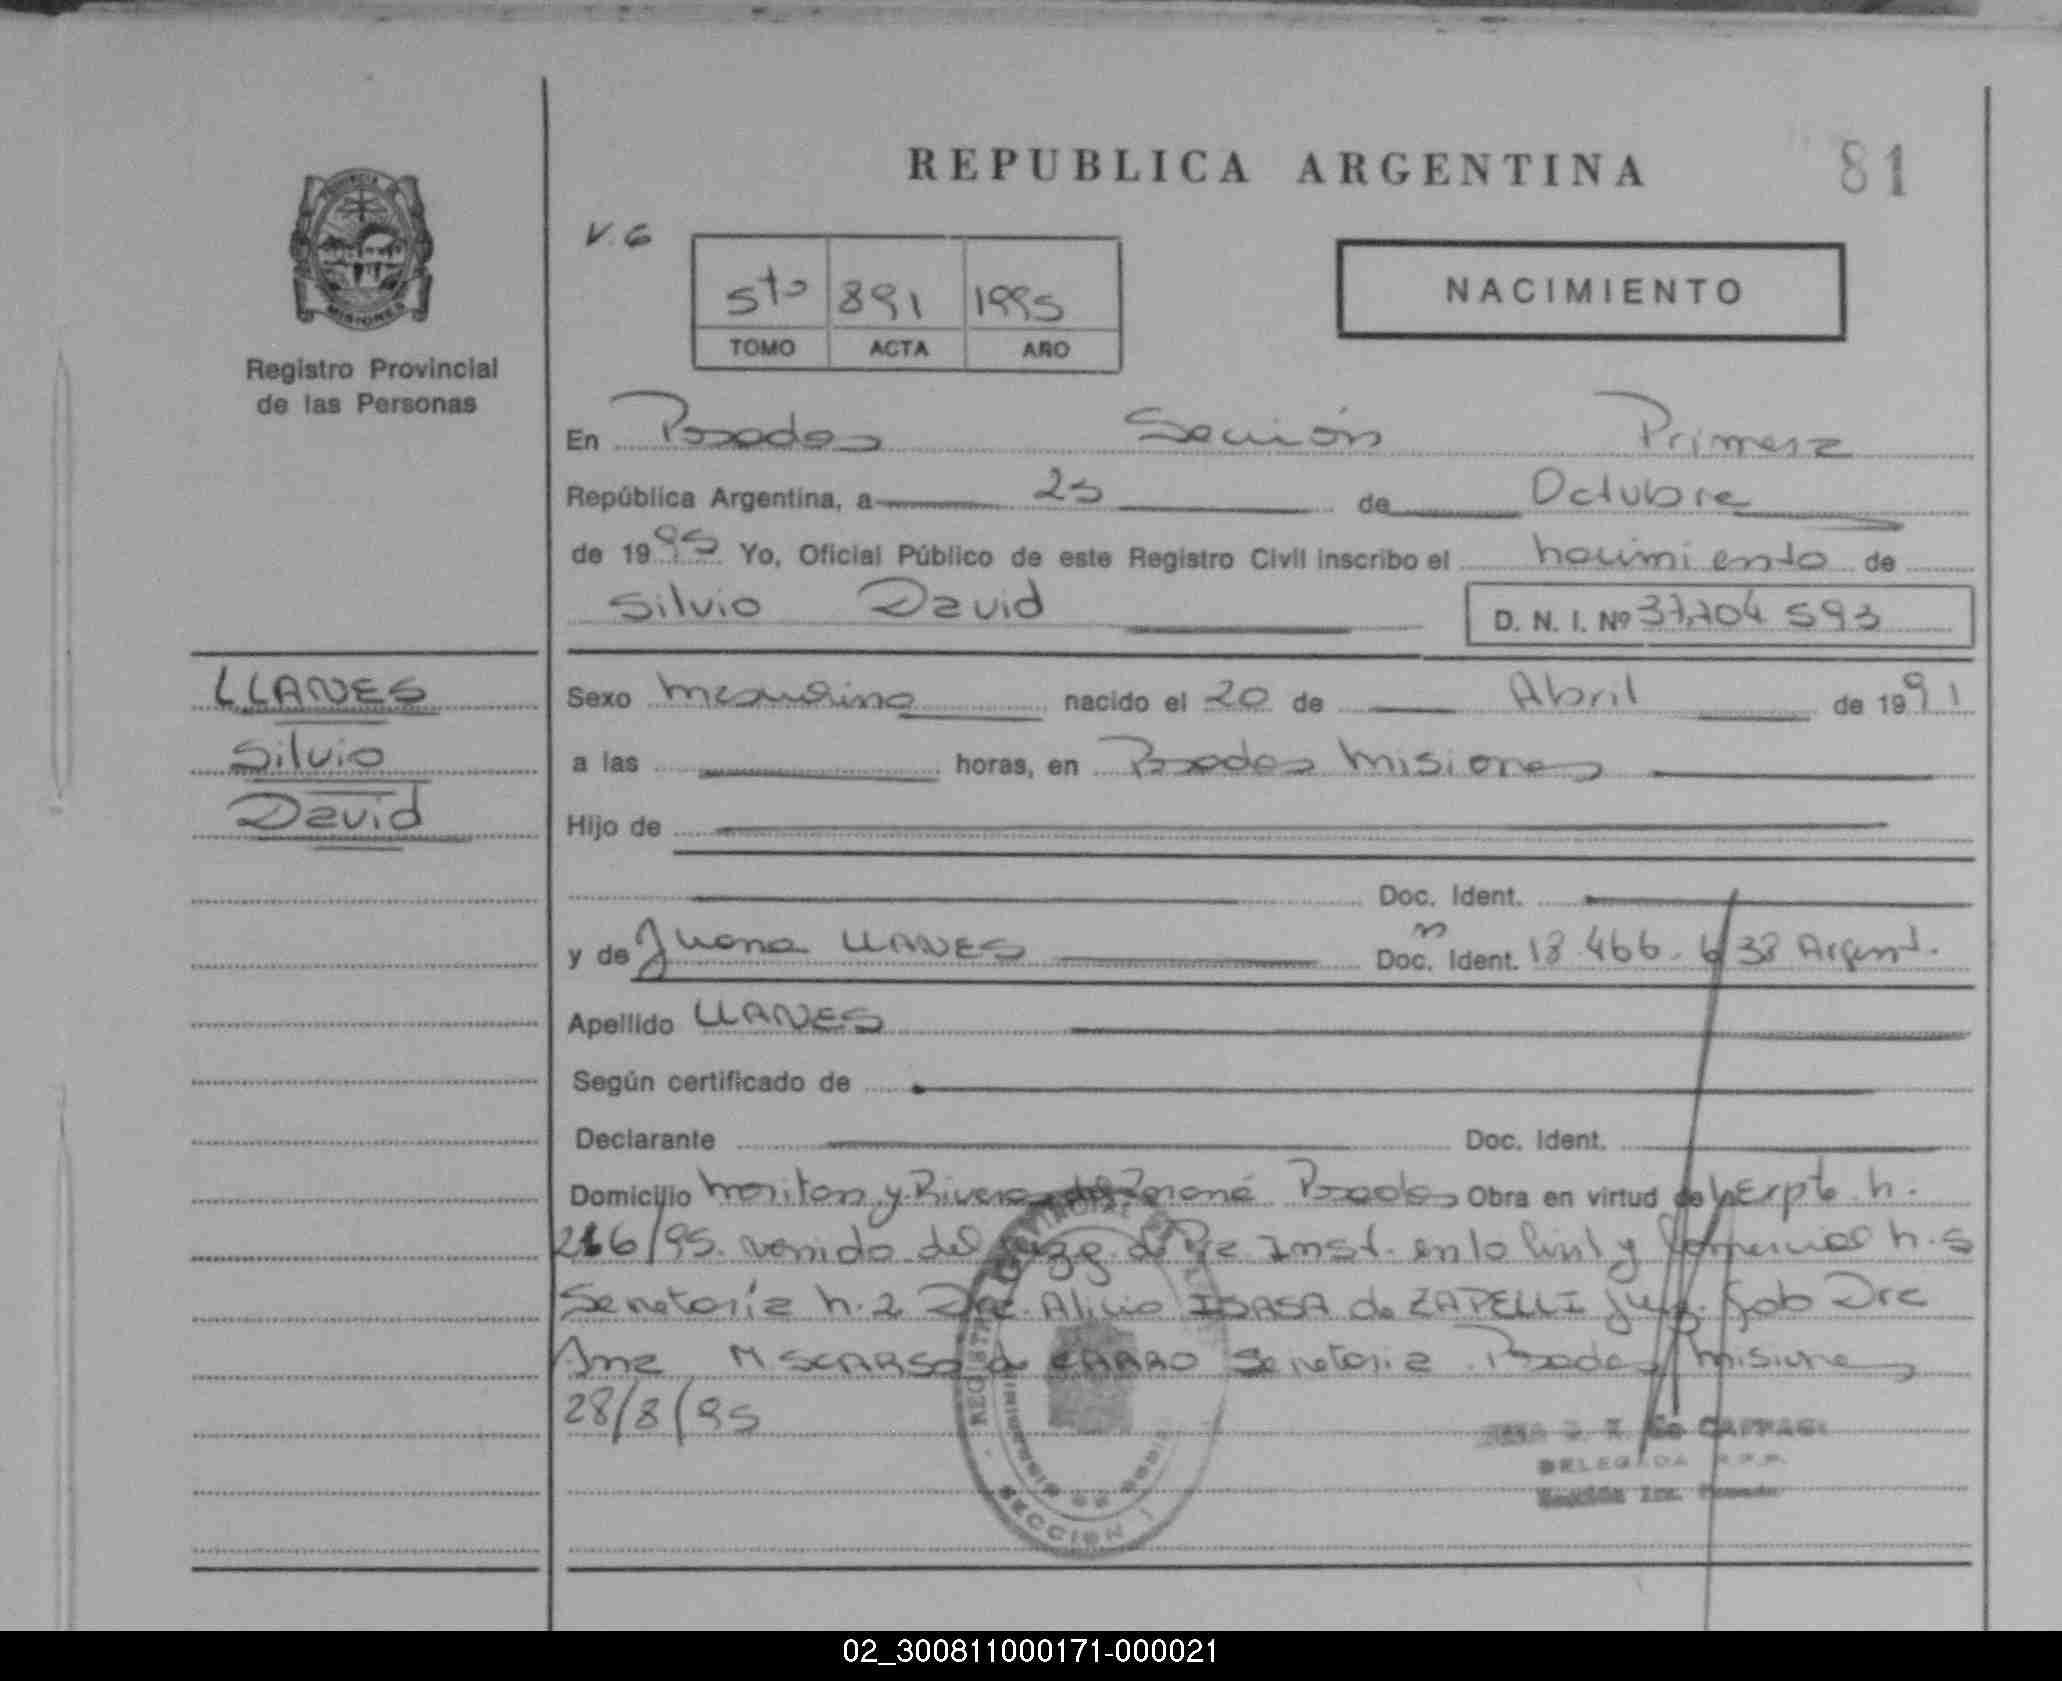 REPUBLICA ARGENTINA
81
V. 6
5to 891 1995
TOMO ACTA AÑO
NACIMIENTO
PROVINCIA DE
MISIONES
Registro Provincial
de las Personas
En Posadas Sección Primera
República Argentina, a 25 de Octubre
de 1995 Yo, Oficial Público de este Registro Civil inscribo el nacimiento de
Silvio David
D. N. I. Nº 37,704 593
LLANES
Silvio
David
Sexo masculino nacido el 20 de Abril de 1991
a las horas, en Posadas Misiones
Hijo de
Doc. Ident.
y de Juana LLANES Doc. Ident. 18.466.638 Argent.
Apellido LLANES
Según certificado de
Declarante Doc. Ident.
Domicilio y Rivera del Paraná Posadas Obra en virtud de Expte n.
216/95 venido del Juzg. de Pra Inst. en lo Civil y Comercial n. 5
Secretaría n. 2 Dra. Alicia de ZAPELLI Juez. Sob Dra
Ana M SCARSO de Secretaria Posadas Misiones
28/8/95
REGISTRO PROVINCIAL
SECCION 1
DELEGADA R.P.P.
Sección 1ra. Posadas
02_300811000171-000021